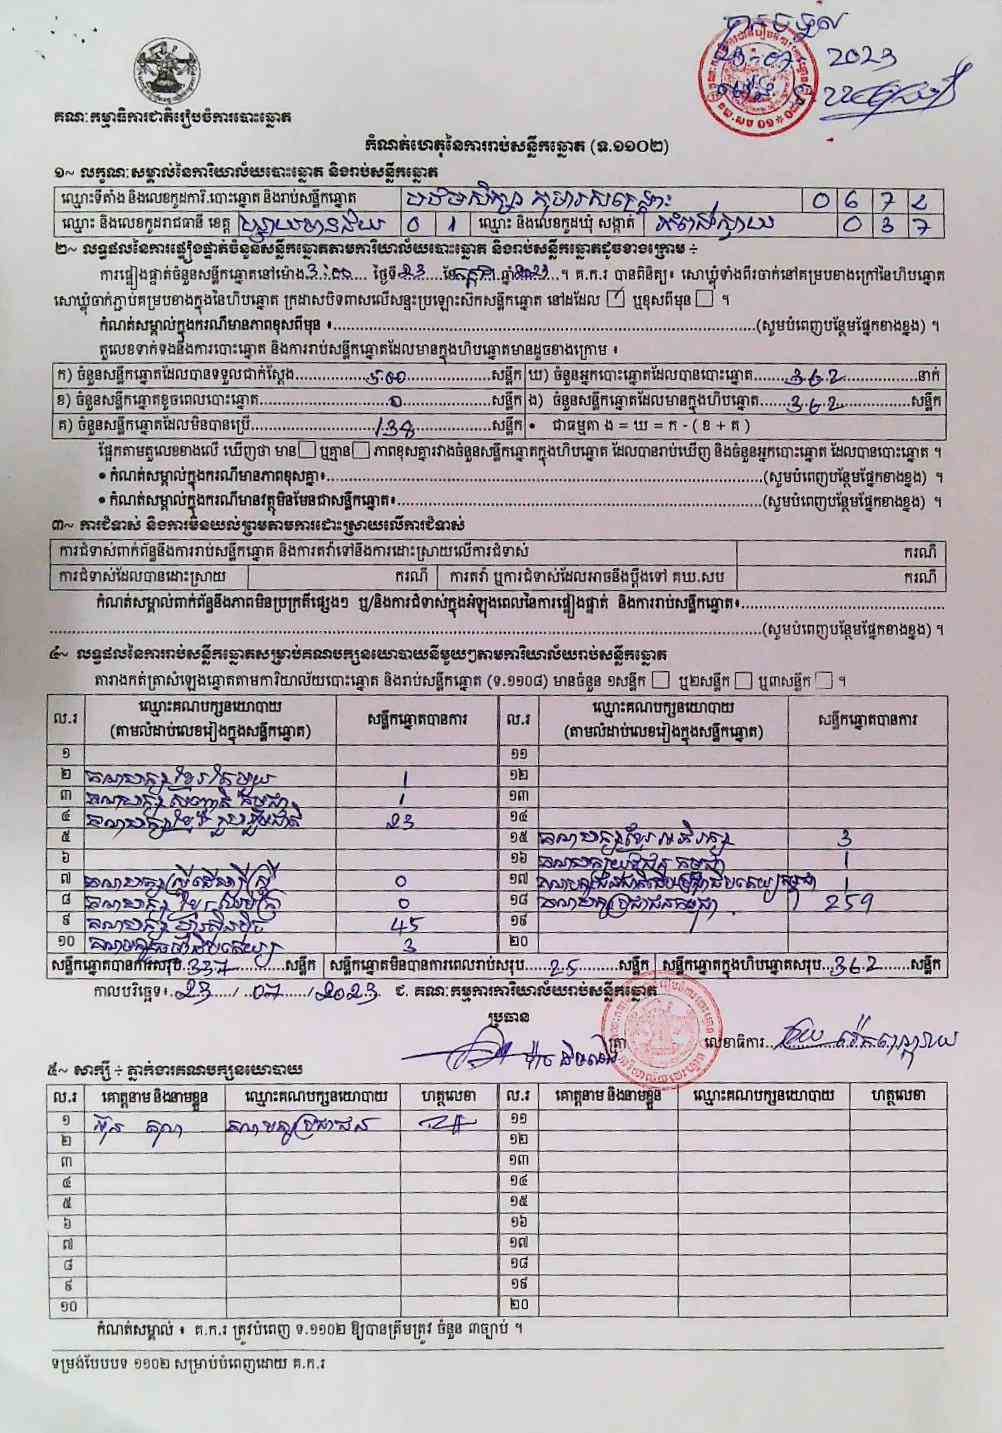 2023
គណៈកម្មាធិការជាតិរៀបចំការបោះឆ្នោត
កំណត់ហេតុនៃការរាប់សន្លឹកឆ្នោត (ទ.១១០២)
១~ លក្ខណៈសម្គាល់នៃការិយាល័យបោះឆ្នោត និងរាប់សន្លឹកឆ្នោត
ឈ្មោះទីតាំង និងលេខកូដការិ.បោះឆ្នោត និងរាប់សន្លឹកឆ្នោត 0 6 7 2
ឈ្មោះ និងលេខកូដរាជធានី ខេត្ត បន្ទាយមានជ័យ 0 1 ឈ្មោះ និងលេខកូដឃុំ សង្កាត់ 0 3 7
២~ លទ្ធផលនៃការផ្ទៀងផ្ទាត់ចំនួនសន្លឹកឆ្នោតតាមការិយាល័យបោះឆ្នោត និងរាប់សន្លឹកឆ្នោតដូចខាងក្រោម ÷
ការផ្ទៀងផ្ទាត់ចំនួនសន្លឹកឆ្នោតនៅម៉ោង 3:00 ថ្ងៃទី 23 ខែ កក្កដា ឆ្នាំ 2023 ។ គ.ក.រ បានពិនិត្យ៖ សោឃ្លុំទាំងពីរចាក់នៅគម្របខាងក្រៅនៃហិបឆ្នោត
សោឃ្លុំចាក់ភ្ជាប់គម្របខាងក្នុងនៃហិបឆ្នោត ក្រដាសបិទពាសលើសន្ទះប្រឡោះស៊កសន្លឹកឆ្នោត នៅដដែល ☑ ឬខុសពីមុន ☐ ។
កំណត់សម្គាល់ក្នុងករណីមានភាពខុសពីមុន ៖ (សូមបំពេញបន្ថែមផ្នែកខាងខ្នង) ។
តួលេខទាក់ទងនឹងការបោះឆ្នោត និងការរាប់សន្លឹកឆ្នោតដែលមានក្នុងហិបឆ្នោតមានដូចខាងក្រោម ៖
ក) ចំនួនសន្លឹកឆ្នោតដែលបានទទួលជាក់ស្តែង 500 សន្លឹក ឃ) ចំនួនអ្នកបោះឆ្នោតដែលបានបោះឆ្នោត 362 នាក់
ខ) ចំនួនសន្លឹកឆ្នោតខូចពេលបោះឆ្នោត 0 សន្លឹក ង) ចំនួនសន្លឹកឆ្នោតដែលមានក្នុងហិបឆ្នោត 362 សន្លឹក
គ) ចំនួនសន្លឹកឆ្នោតដែលមិនបានប្រើ 138 សន្លឹក • ជាធម្មតា ង = ឃ = ក - ( ខ + គ )
ផ្អែកតាមតួលេខខាងលើ ឃើញថា មាន ☐ ឬគ្មាន ☐ ភាពខុសគ្នារវាងចំនួនសន្លឹកឆ្នោតក្នុងហិបឆ្នោត ដែលបានរាប់ឃើញ និងចំនួនអ្នកបោះឆ្នោត ដែលបានបោះឆ្នោត ។
• កំណត់សម្គាល់ក្នុងករណីមានភាពខុសគ្នា៖ (សូមបំពេញបន្ថែមផ្នែកខាងខ្នង) ។
• កំណត់សម្គាល់ក្នុងករណីមានវត្ថុមិនមែនជាសន្លឹកឆ្នោត៖ (សូមបំពេញបន្ថែមផ្នែកខាងខ្នង) ។
៣~ ការជំទាស់ និងការមិនយល់ព្រមតាមការដោះស្រាយលើការជំទាស់
ការជំទាស់ពាក់ព័ន្ធនឹងការរាប់សន្លឹកឆ្នោត និងការតវ៉ាទៅនឹងការដោះស្រាយលើការជំទាស់ ករណី
ការជំទាស់ដែលបានដោះស្រាយ ករណី ការតវ៉ា ឬការជំទាស់ដែលអាចនឹងប្តឹងទៅ គឃ.សប ករណី
កំណត់សម្គាល់ពាក់ព័ន្ធនឹងភាពមិនប្រក្រតីផ្សេងៗ ឬ/និងការជំទាស់ក្នុងអំឡុងពេលនៃការផ្ទៀងផ្ទាត់ និងការរាប់សន្លឹកឆ្នោត៖
(សូមបំពេញបន្ថែមផ្នែកខាងខ្នង) ។
៤~ លទ្ធផលនៃការរាប់សន្លឹកឆ្នោតសម្រាប់គណបក្សនយោបាយនីមួយៗតាមការិយាល័យរាប់សន្លឹកឆ្នោត
តារាងកត់ត្រាសំឡេងឆ្នោតតាមការិយាល័យបោះឆ្នោត និងរាប់សន្លឹកឆ្នោត (ទ.១១០៨) មានចំនួន ១សន្លឹក ☐ ឬ២សន្លឹក ☐ ឬ៣សន្លឹក ☐ ។
ល.រ ឈ្មោះគណបក្សនយោបាយ (តាមលំដាប់លេខរៀងក្នុងសន្លឹកឆ្នោត) សន្លឹកឆ្នោតបានការ ល.រ ឈ្មោះគណបក្សនយោបាយ (តាមលំដាប់លេខរៀងក្នុងសន្លឹកឆ្នោត) សន្លឹកឆ្នោតបានការ
១ ១១
២ 1 ១២
៣ 1 ១៣
៤ គណបក្សខ្មែរ រួបរួមជាតិ 23 ១៤
៥ ១៥ គណបក្សខ្មែរអភិរក្ស 3
៦ ១៦ 1
៧ គណបក្សស្ត្រីដើម្បីស្ត្រី 0 ១៧ 1
៨ 0 ១៨ គណបក្សប្រជាជនកម្ពុជា 259
៩ គណបក្សហ្វ៊ុនស៊ិនប៉ិច 45 ១៩
១០ 3 ២០
សន្លឹកឆ្នោតបានការសរុប 337 សន្លឹក សន្លឹកឆ្នោតមិនបានការពេលរាប់សរុប 25 សន្លឹក សន្លឹកឆ្នោតក្នុងហិបឆ្នោតសរុប 362 សន្លឹក
កាលបរិច្ឆេទ៖ 23 / 07 / 2023 ជ. គណៈកម្មការការិយាល័យរាប់សន្លឹកឆ្នោត
ប្រធាន
ត្រា លេខាធិការ
៥~ សាក្សី ÷ ភ្នាក់ងារគណបក្សនយោបាយ
ល.រ គោត្តនាម និងនាមខ្លួន ឈ្មោះគណបក្សនយោបាយ ហត្ថលេខា ល.រ គោត្តនាម និងនាមខ្លួន ឈ្មោះគណបក្សនយោបាយ ហត្ថលេខា
១ គណបក្សប្រជាជន ១១
២ ១២
៣ ១៣
៤ ១៤
៥ ១៥
៦ ១៦
៧ ១៧
៨ ១៨
៩ ១៩
១០ ២០
កំណត់សម្គាល់ ៖ គ.ក.រ ត្រូវបំពេញ ទ.១១០២ ឱ្យបានត្រឹមត្រូវ ចំនួន ៣ច្បាប់ ។
ទម្រង់បែបបទ ១១០២ សម្រាប់បំពេញដោយ គ.ក.រ